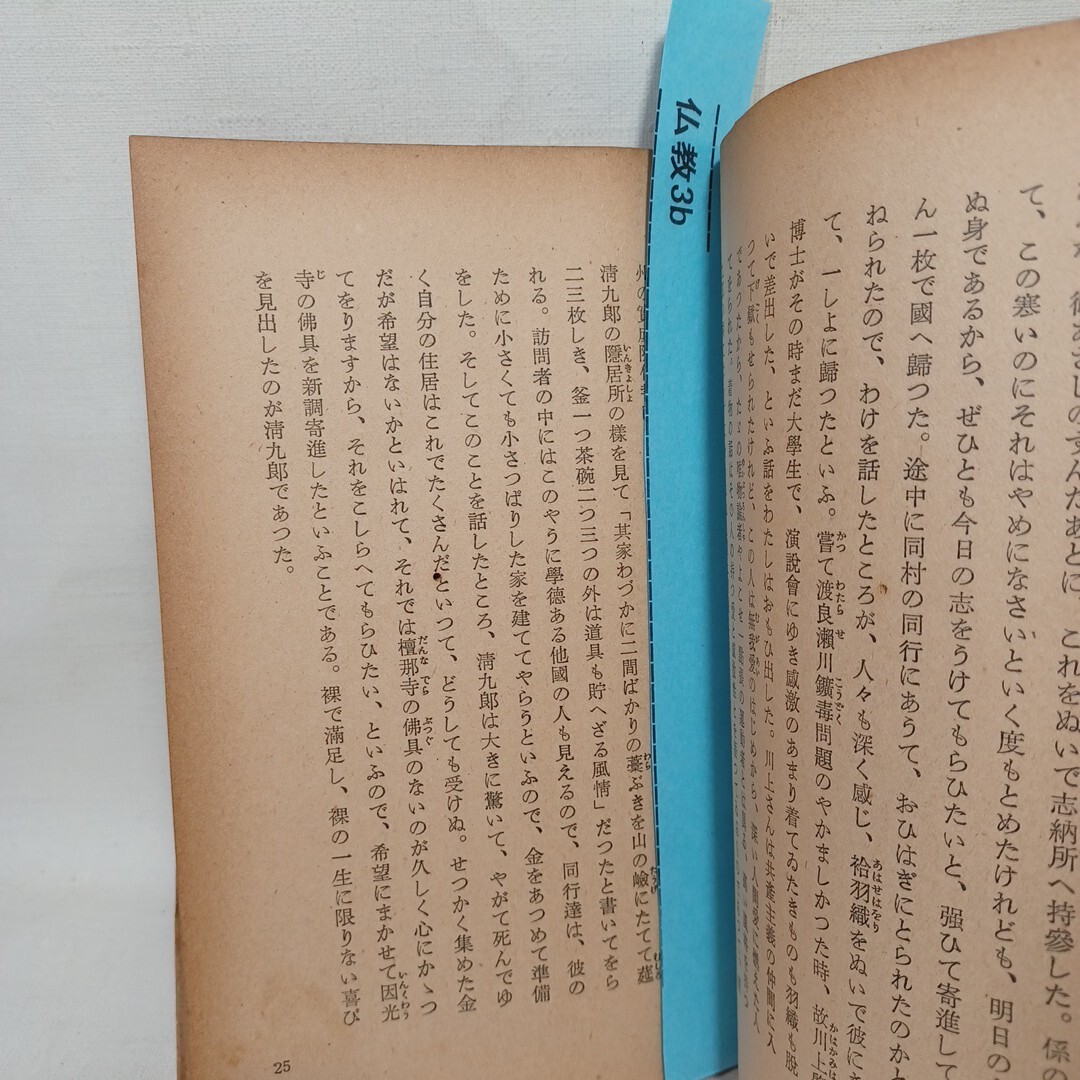 て、この寒いのにそれはやめになさいといく度もとめたけれども、明日の
ぬ身であるから、ぜひとも今日の志をうけてもらひたいと、强ひて寄進して
ん一枚で國へ歸つた。途中に同村の同行にあうて、おひはぎにとられたのか
ねられたので、わけを話したところが、人々も深く感じ、袷羽織をぬいで彼に
て、一しよに歸つたといふ。嘗て渡良瀨川鑛毒問題のやかましかつた時、故川上
博士がその時まだ大學生で、演說會にゆき感激のあまり着てゐたきものも羽織も脫
いで差出した、といふ話をわたしはおもひ出した。川上さんは共產主義の仲間に入
つて下獄もせられたけれど、この人は無我愛のはじめから、深い人間愛に
仏教3b
淸九郎の隱居所の樣を見て「其家わづかに二間ばかりの藁ぶきを山の嶮にたてて莚
二三枚しき、釜一つ茶碗二つ三つの外は道具も貯へざる風情」だつたと書いてをら
れる。訪問者の中にはこのやうに學德ある他國の人も見えるので、同行達は、彼の
ために小さくても小さつぱりした家を建ててやらうといふので、金をあつめて準備
をした。そしてこのことを話したところ、淸九郎は大きに驚いて、やがて死んでゆ
く自分の住居はこれでたくさんだといつて、どうしても受けぬ。せつかく集めた金
だが希望はないかといはれて、それでは檀那寺の佛具のないのが久しく心にかゝつ
てをりますから、それをこしらへてもらひたい、といふので、希望にまかせて因光
寺の佛具を新調寄進したといふことである。裸で滿足し、裸の一生に限りない喜び
を見出したのが淸九郎であつた。
25